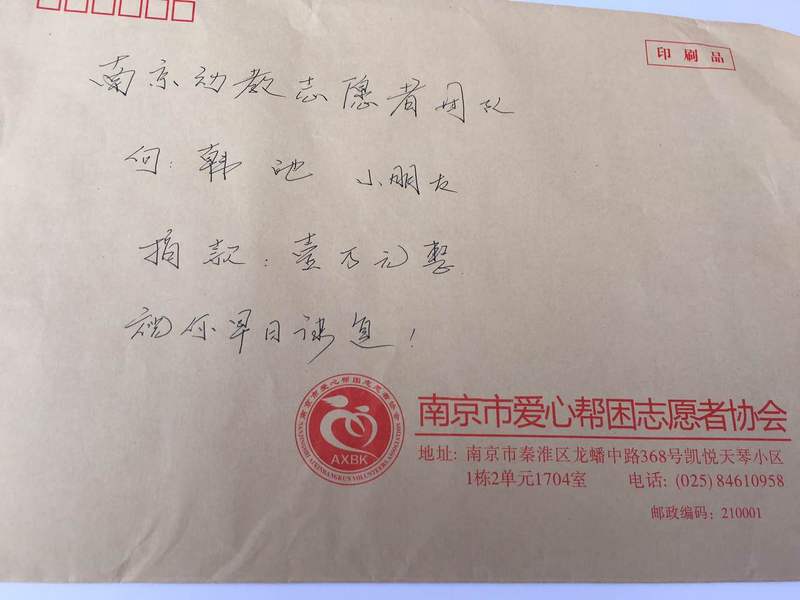 印刷品
南京动教志愿者团队
向：韩池 小朋友
捐款：壹万元整
祝你早日康复！
南京市爱心帮困志愿者协会
AXBK
南京市爱心帮困志愿者协会
地址：南京市秦淮区龙蟠中路368号凯悦天琴小区
1栋2单元1704室 电话：(025) 84610958
邮政编码：210001